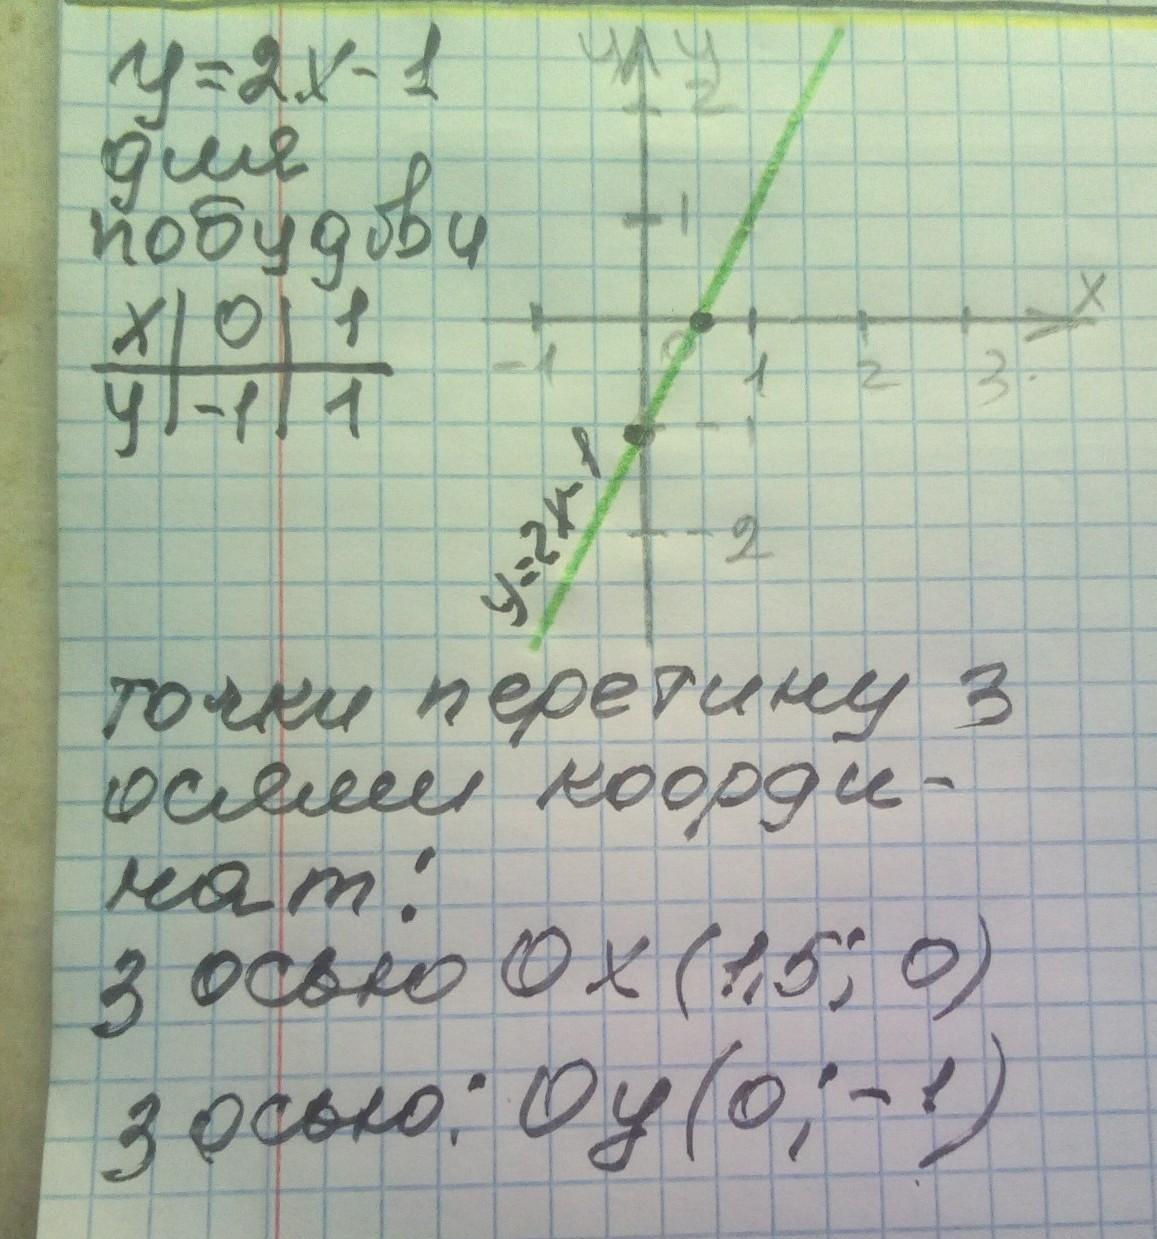 y=2x-1
для
побудови
x | 0 | 1
y | -1 | 1
y y
2
1
x
-1 0 1 2 3
-1
-2
y=2x-1
точки перетину з
осями коорди-
нат:
з осью Ox (1,5; 0)
з осью: Oy (0; -1)